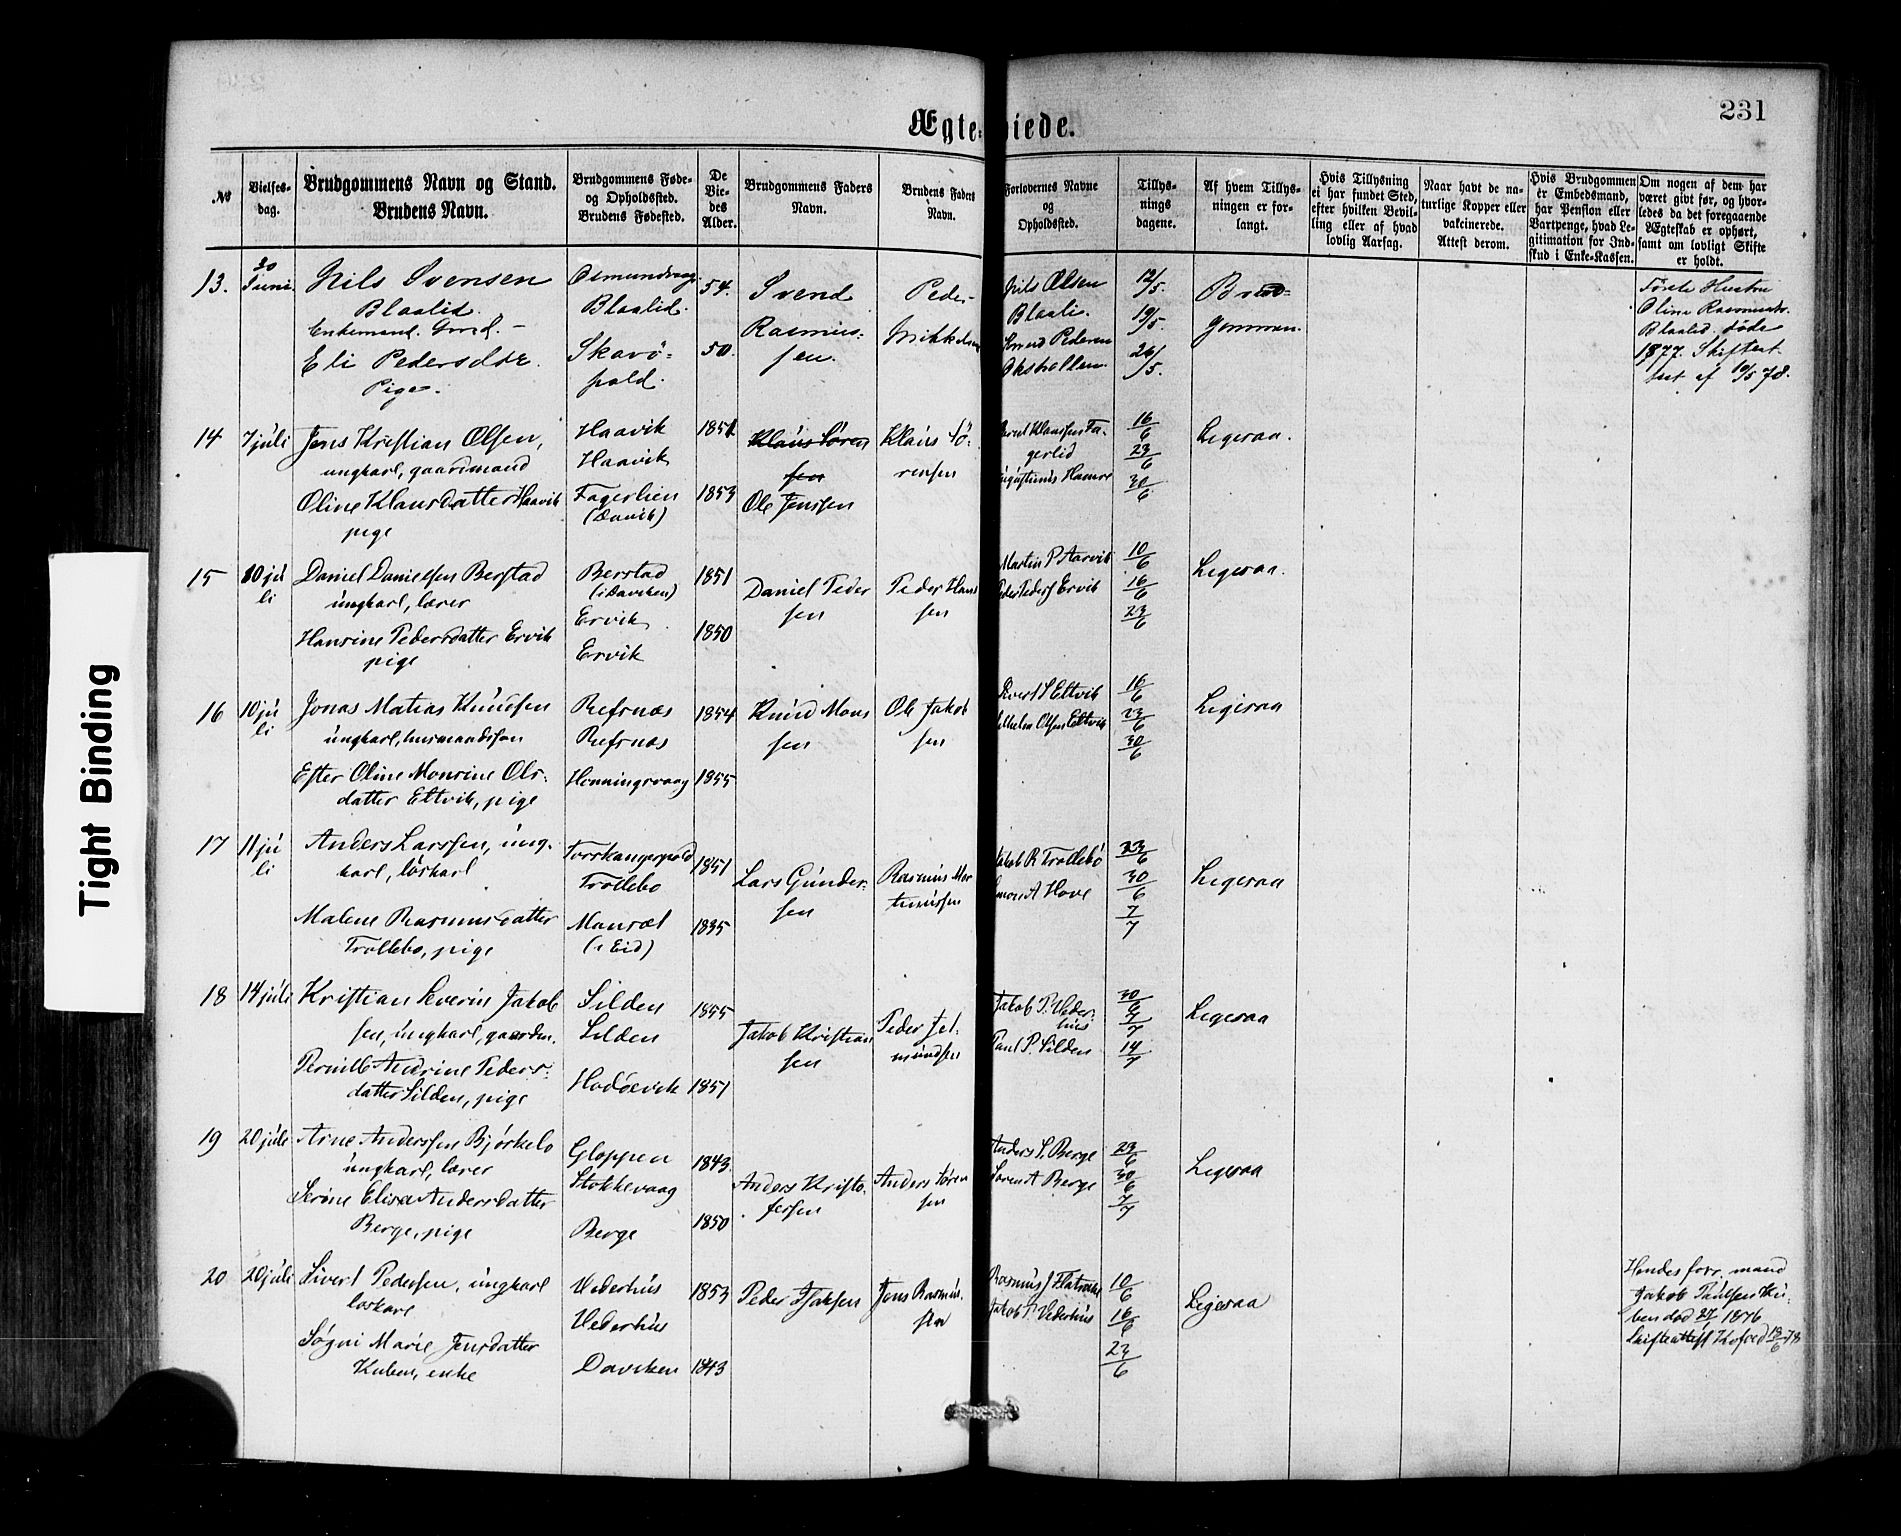 231
Ægte-viede.
№
Vielses-
dag.
Brudgommens Navn og Stand.
Brudens Navn.
Brudgommens Føde-
og Opholdssted.
Brudens Fødested.
De
Vie-
des
Alder.
Brudgommens Faders
Navn.
Brudens Faders
Navn.
Forlovernes Navne
og
Opholdssted.
Tillys-
nings
dagene.
Af hvem Tillys-
ningen er for-
langt.
Hvis Tillysning
ei har fundet Sted,
efter hvilken Bevil-
ling eller af hvad
lovlig Aarsag.
Naar havt de na-
turlige Kopper eller
vakcinerede.
Attest derom.
Hvis Brudgommen
er Embedsmand,
har Pension eller
Vartpenge, hvad Le-
gitimation for Ind-
skud i Enke-Kassen.
Om nogen af dem har
været givt før, og hvor-
ledes da det foregaaende
Ægteskab er ophørt,
samt om lovligt Skifte
er holdt.
13.
30
Juni
Nils Svensen
Blaalid.
Enkemand. Gmd. –
Eli Pedersdtr.
Pige.
Osmundvaag
Blaalid.
Skavø-
pold.
54.
50.
Svend
Rasmus-
sen.
Peder
Mikkelsen
Nils Olsen
Blaali.
Pedersen
12/5.
19/5.
26/5.
Brud-
gommen.
Første Hustru
Oline Rasmusdr.
Blaalid døde
1877. Skifteat-
test af 10/5 78.
14
7 juli
Jens Kristian Olsen,
ungkarl, gaardmand
Oline Klausdatter Haavik
pige
Haavik
Haavik
Fagerlien
1851
1853
Klaus Søren
sen
Ole Jenssen
Klaus Sø-
rensen
Klaussen Fa-
gerlid
16/6
23/6
30/6
Ligesaa.
15
10 ju
li
Daniel Danielsen Berstad
ungkarl, lærer
Hansine Pedersdatter Ervik
pige
Berstad
(i Daviken)
Ervik
Ervik
1851
1850
Daniel Peder
sen
Peder Hans
sen
Martin P. Aarvik
Peder Peders Ervik
10/6
16/6
23/6
Ligesaa.
16
10 ju
li
Jonas Matias Knudsen
ungkarl, husmandssøn
Ester Oline Monsine Ols-
datter Eltvik, pige
Refsnæs
Refsnæs
Honningsvaag
1854
1855
Knud Mons
sen
Ole Jakob
sen
Sivert S Eltvik
Vilhelm Olsen Eltvik
16/6
23/6
30/6
Ligesaa
17
11 ju
li
Anders Larssen, ung-
karl, løskarl
Malene Rasmusdatter
Trollebø, pige
Torskangerpold
Trollebø
Maurset
(i Eid)
1851
1835
Lars Gunder-
sen
Rasmus Mor
tinussen
Jakob R Trollebø
Simon A Hove
23/6
30/6
7/7
Ligesaa
18
14 juli
Kristian Severin Jakob
sen, ungkarl, gaardm.
Pernille Andrine Peders-
datter Silden, pige
Silden
Silden
Hodøevik
1855
1851
Jakob Kristian
sen
Peder Jet-
mundsen
Jakob P. Veder-
hus
Paul P. Silden
30/6
7/7
14/7
Ligesaa
19
20 juli
Arne Anderssen Bjørkelo
ungkarl, lærer
Serine Elise Andersdatter
Berge, pige
Gloppen
Stokkevaag
Berge
1843.
1850
Anders Kristo-
fersen
Anders Søren
sen
Anders S. Berge
Søren A Berge
23/6
30/6
7/7
Ligesaa
20
20 juli
Sivert Pedersen, ungkarl
løskarl
Søgni Marie Jensdatter
Kuben, enke
Vederhus
Vederhus
Daviken
1853
1843
Peder Isaksen
Jens Rasmus-
sen
Rasmus J Flatraket
Jakob P. Vederhus
10/6
16/6
23/6
Ligesaa
Hendes forr. mand
Jakob Paulsen Ku-
ben død 1876
Skifteattest
Tight Binding